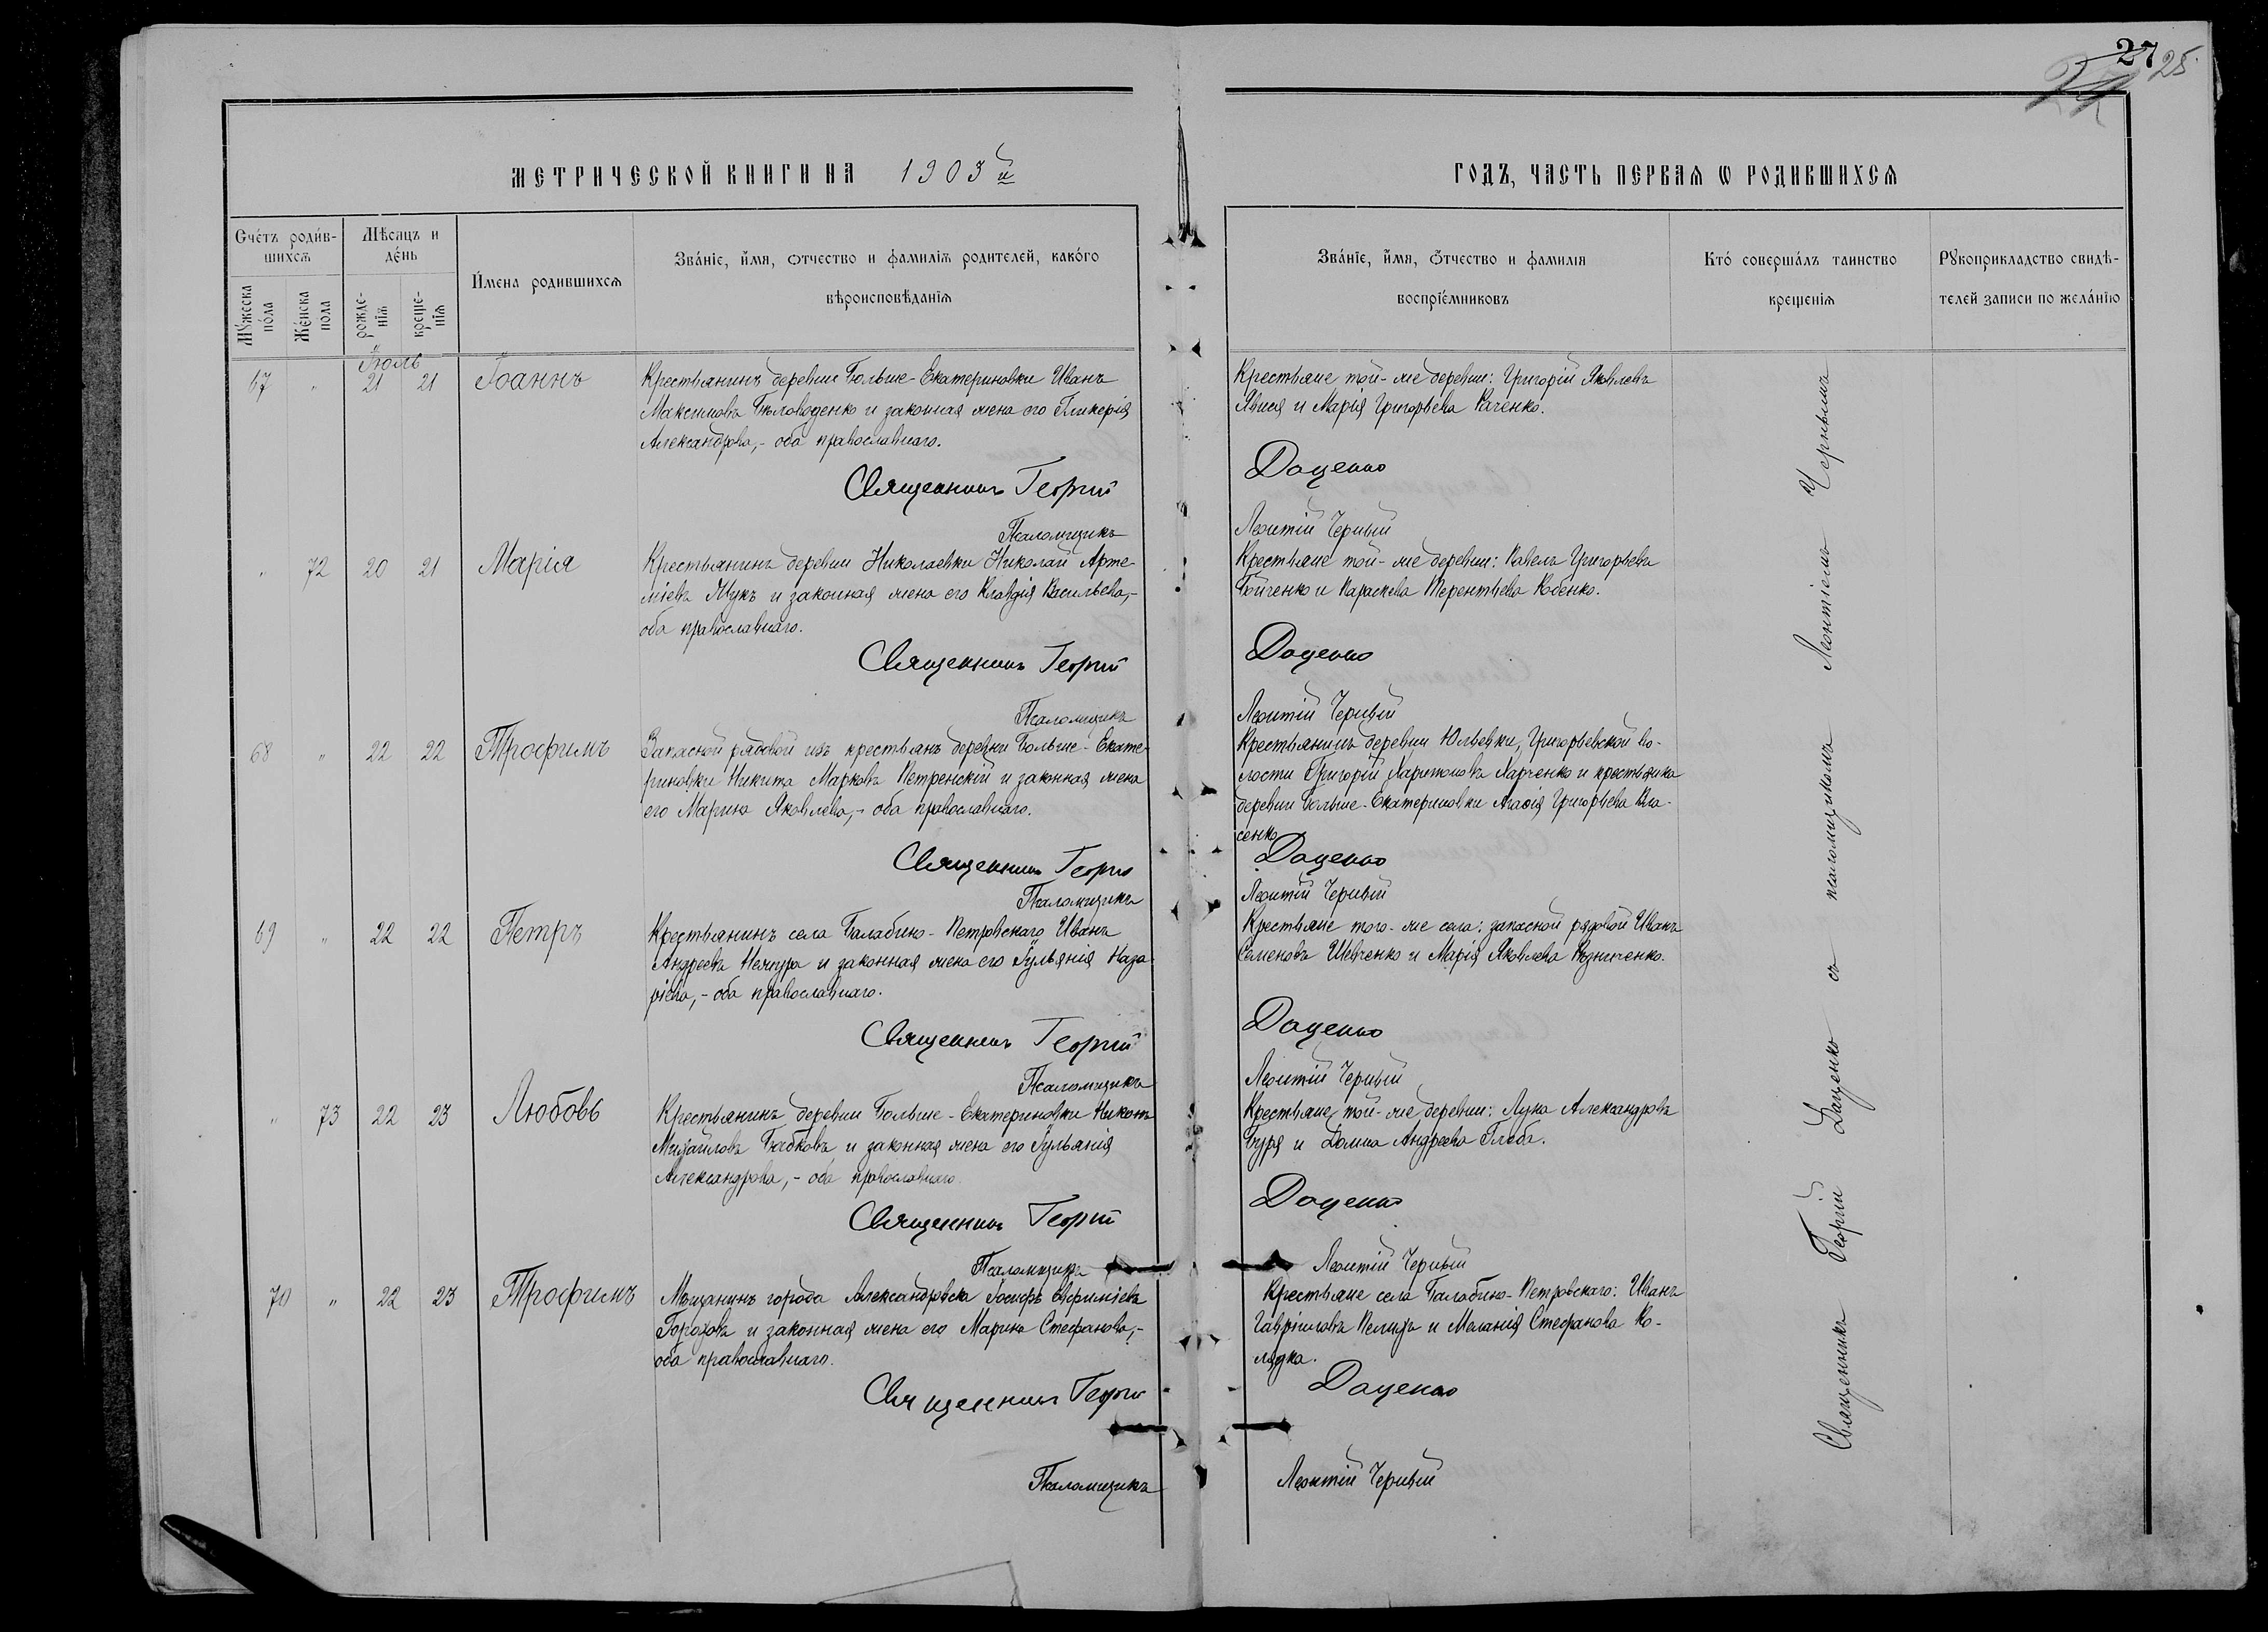 27 25
МЕТРИЧЕСКОЙ КНИГИ НА 1903й ГОДЪ, ЧАСТЬ ПЕРВАЯ Ѡ РОДИВШИХСЯ
Счетъ родив-
шихся
Мужеска
пола
Женска
пола
Мѣсяцъ и
день
рожде-
нія
креще-
нія
Имена родившихся
Званіе, имя, отчество и фамилія родителей, какого
вѣроисповѣданія
Званіе, имя, отчество и фамилія
воспріемниковъ
Кто совершалъ таинство
крещенія
Рукоприкладство свидѣ-
телей записи по желанію
Іюль
67 " 21 21 Іоаннъ
Крестьянинъ деревни Больше-Екатериновки Иванъ
Максимовъ Бѣловоденко и законная жена его Гликерія
Александрова,- оба православнаго.
Крестьяне той-же деревни: Григорій Яковлевъ
и Марія Григорьева
Священникъ Георгій Доценко
Псаломщикъ Леонтій Черный
" 72 20 21 Марія
Крестьянинъ деревни Николаевки Николай Арте-
міевъ Жукъ и законная жена его Клавдія Васильева,-
оба православнаго.
Крестьяне той-же деревни: Павелъ Григорьевъ
Бойченко и Параскева Терентьева Кобенко.
Священникъ Георгій Доценко
Псаломщикъ Леонтій Черный
68 " 22 22 Трофимъ
Запасной рядовой изъ крестьянъ деревни Больше-Екате-
риновки Никита Марковъ Петренскій и законная жена
его Марина Яковлева,- оба православнаго.
Крестьянинъ деревни Юльевки, Григорьевской во-
лости Григорій Харитоновъ Харченко и крестьянка
деревни Больше-Екатериновки Агафія Григорьева Вла-
сенко
Священникъ Георгій Доценко
Псаломщикъ Леонтій Черный
69 " 22 22 Петръ
Крестьянинъ села Балабино-Петровскаго Иванъ
Андреевъ и законная жена его Іульянія Наза-
ріева,- оба православнаго.
Крестьяне того-же села: запасной рядовой Иванъ
Семеновъ Шевченко и Марія Яковлева
Священникъ Георгій Доценко
Псаломщикъ Леонтій Черный
" 73 22 23 Любовь
Крестьянинъ деревни Больше-Екатериновки Никонъ
Михайловъ Бабковъ и законная жена его Іульянія
Александрова,- оба православнаго.
Крестьяне той-же деревни: Лука Александровъ
Буря и Домна Андреева Глеба.
Священникъ Георгій Доценко
Псаломщикъ Леонтій Черный
70 " 22 23 Трофимъ
Мѣщанинъ города Александровска Іосифъ Евфиміевъ
Гороховъ и законная жена его Марина Стефанова,-
оба православнаго.
Крестьяне села Балабино-Петровскаго: Иванъ
Гавріиловъ и Меланія Стефанова Ко-
лядка.
Священникъ Георгій Доценко
Псаломщикъ Леонтій Черный
Священникъ Георгій Доценко съ псаломщикомъ Леонтіемъ Чернымъ